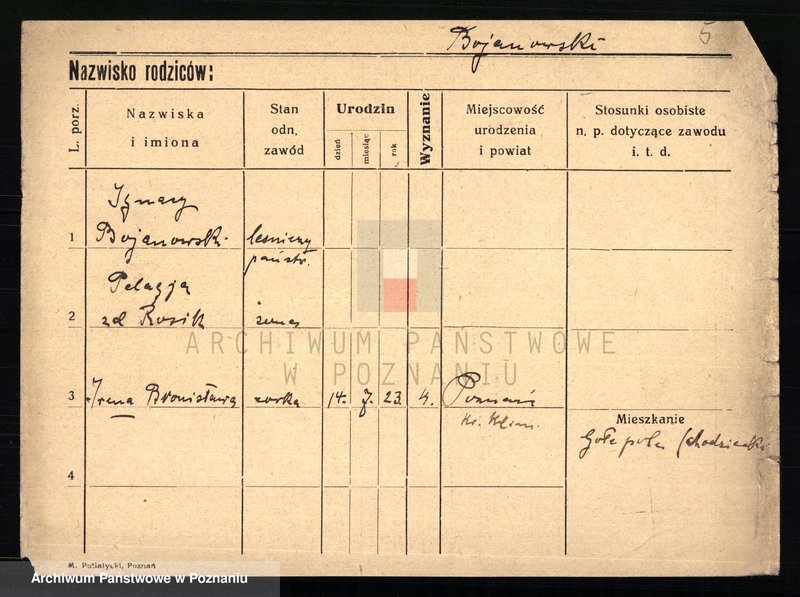 Bojanowski
5
Nazwisko rodziców:
L. porz.
Nazwiska
i imiona
Stan
odn.
zawód
Urodzin
dzień
miesiąc
rok
Wyznanie
Miejscowość
urodzenia
i powiat
Stosunki osobiste
n. p. dotyczące zawodu
i. t. d.
Ignacy
1 Bojanowski leśniczy
państw.
Pelagja
2 zd Rosik żona
ARCHIWUM PAŃSTWOWE
W POZNANIU
3 Irena Bronisława córka 14. 7. 23. Poznań
Mieszkanie
4
M. Putiatycki, Poznań
Archiwum Państwowe w Poznaniu